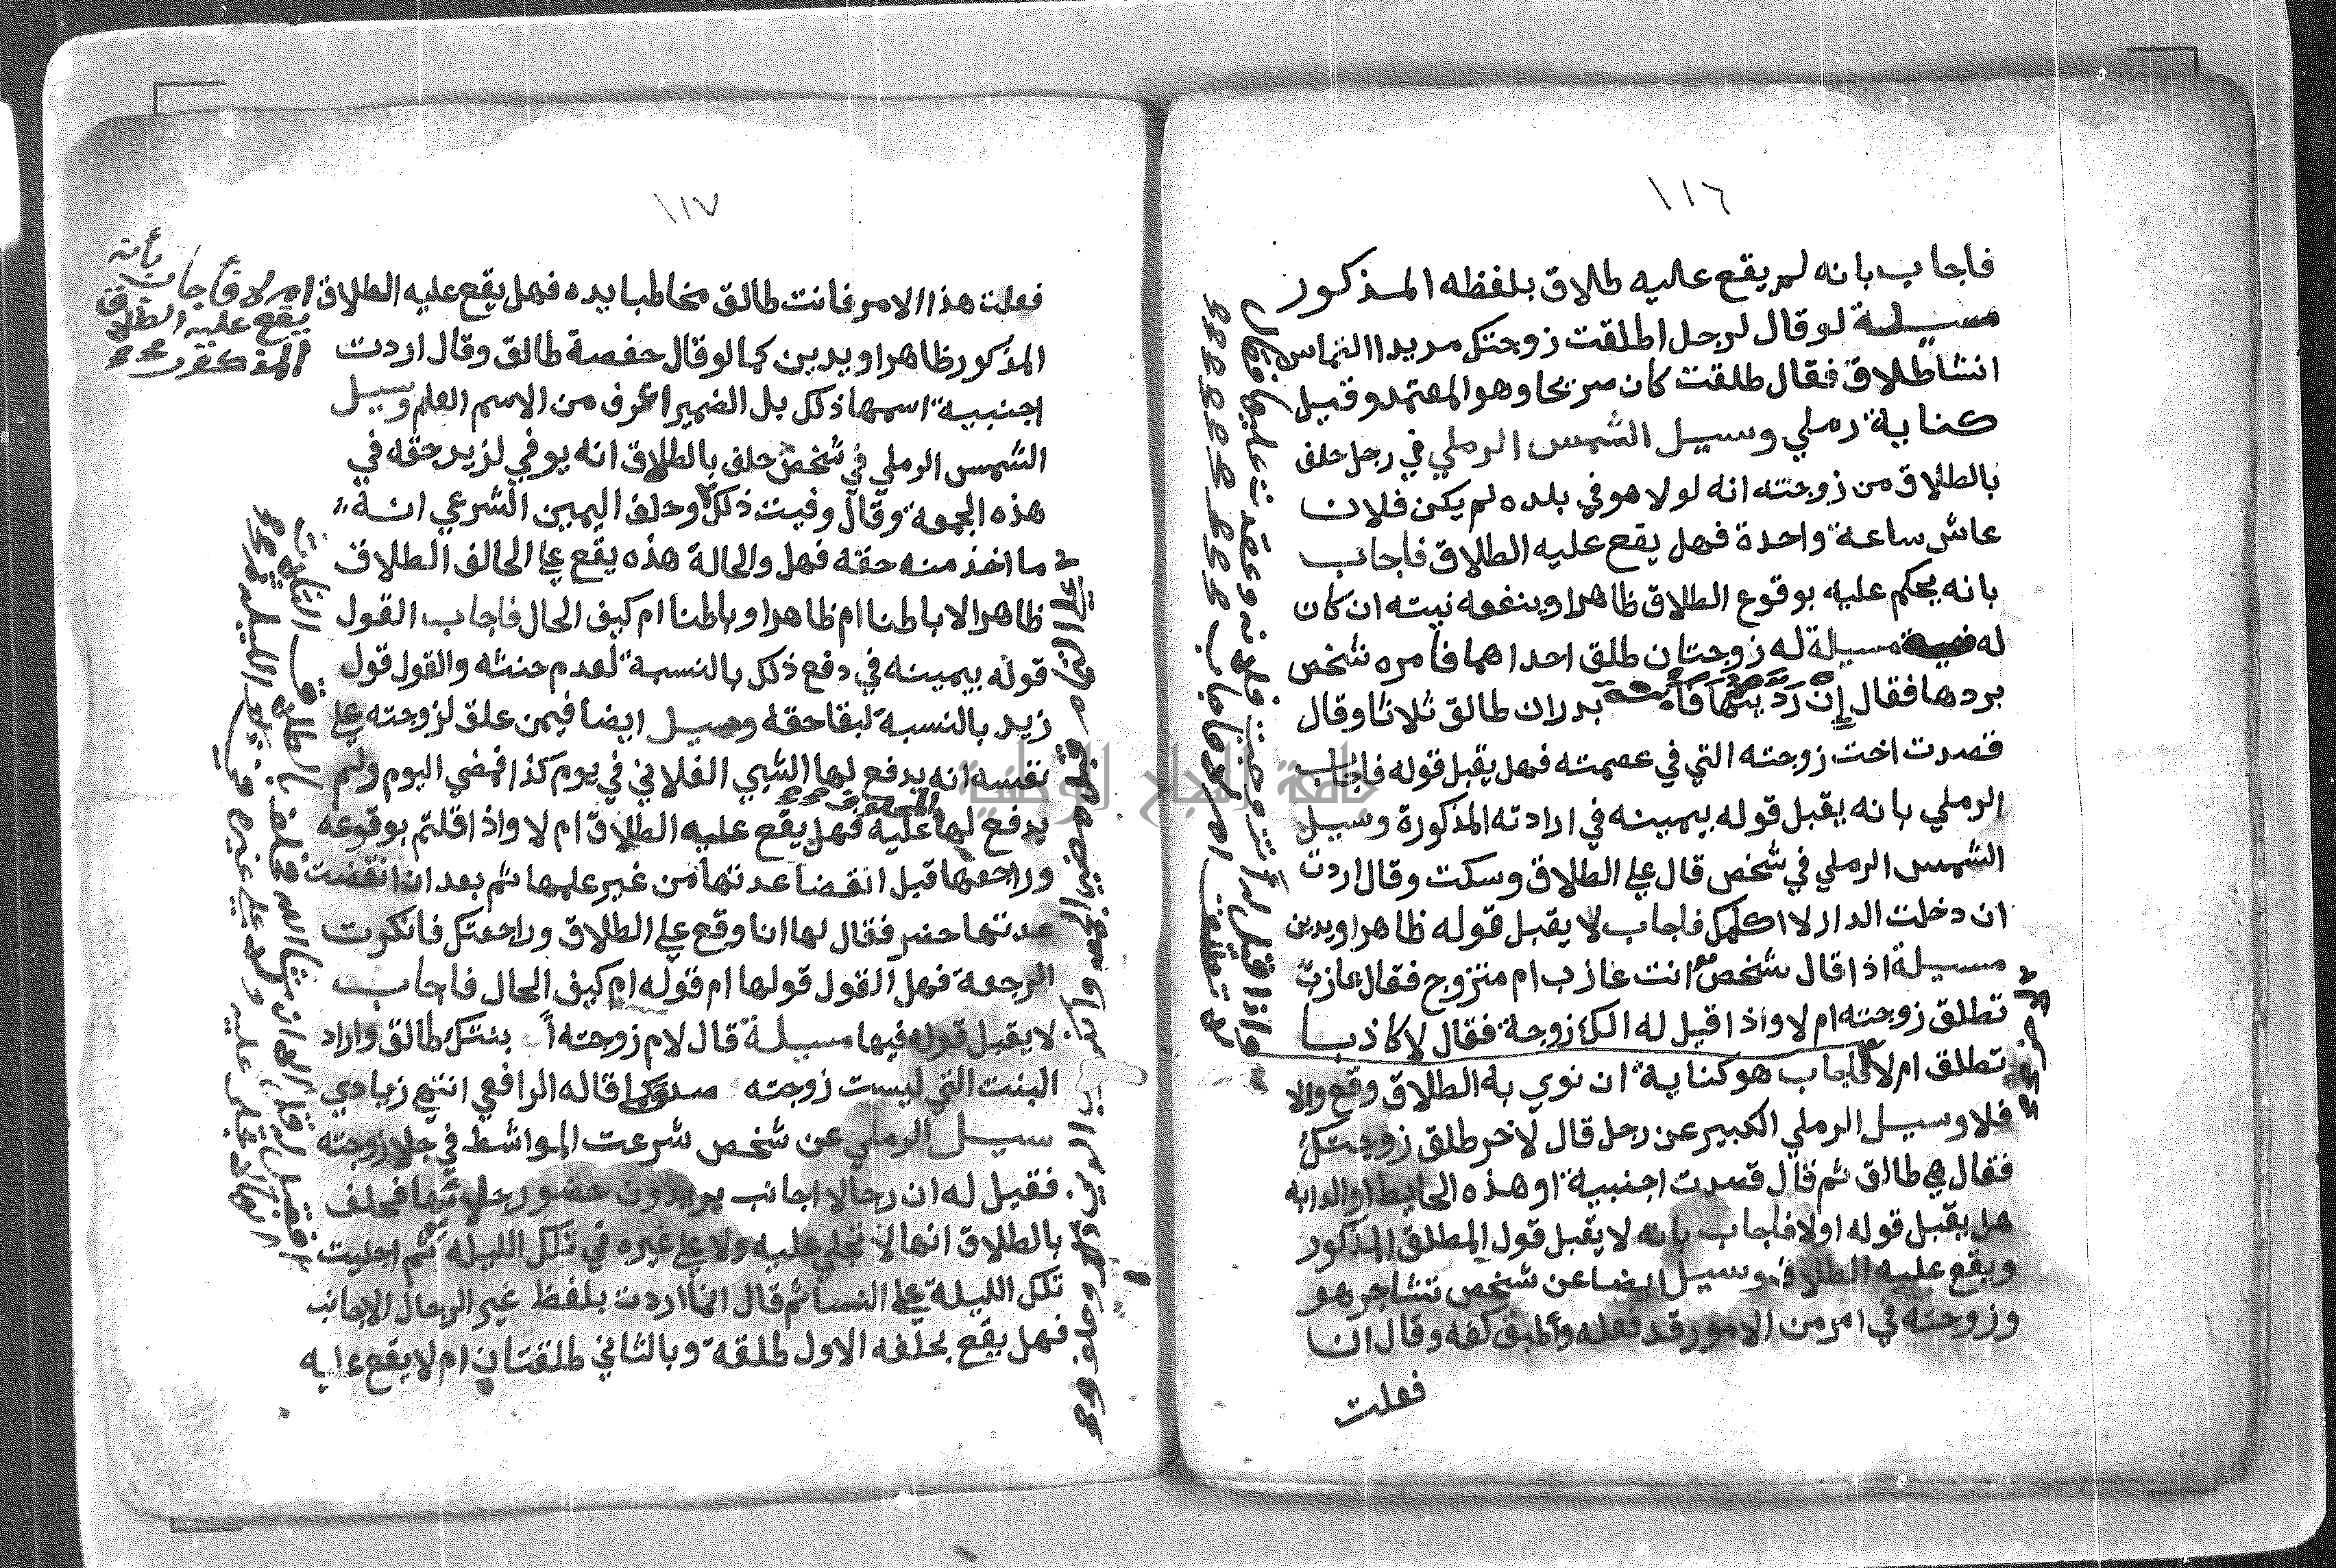 ١١٦
فاجاب بانه لم يقع عليه طلاق بلفظه المذكور
مسيلة لو قال لرجل اطلقت زوجتك مريدا التماس
انشا طلاق فقال طلقت كان صريحا وهو المعتمد وقيل
كناية رملي وسيل الشمس الرملي في رجل حلف
بالطلاق من زوجته انه لولا هو في بلده لم يكن فلان
عاش ساعة واحدة فهل يقع عليه الطلاق فاجاب
بانه يحكم عليه بوقوع الطلاق ظاهرا وينفعه نيته ان كان
له مسيلة له زوجتان طلق احداهما فامره شخص
بردها فقال ان رديتها بدران طالق ثلاثا وقال
قصدت اخت زوجته التي في عصمته فهل يقبل قوله فاجاب
الرملي بانه يقبل قوله بيمينه في ارادته المذكورة وسيل
الشمس الرملي في شخص قال علي الطلاق وسكت وقال اردت
ان دخلت الدار لا اكلمك فاجاب لا يقبل قوله ظاهرا ويدين
مسيلة اذا قال شخص انت عازب ام متزوج فقال عازب
تطلق زوجته ام لا واذا قيل له الك زوجة فقال لا كاذبا
تطلق ام لا فاجاب هو كناية ان نوي به الطلاق وقع والا
فلا وسيل الرملي الكبير عن رجل قال لاخر طلق زوجتك
فقال هي طالق ثم قال قصدت اجنبية او هذه الحايط او الدابة
هل يقبل قوله اولا فاجاب بانه لا يقبل قول المطلق المذكور
ويقع عليه الطلاق وسيل ايضا عن شخص تشاجر هو
وزوجته في امر من الامور قد فعله واطبق كفه وقال انا
فعلت
واذا قيل له أنت وصيت فلانه وعقدت عليها فقال
لا تطلق ام لا فاجاب
١١٧
فعلت هذا الامر فانت طالق مخاطبا يده فهل يقع عليه الطلاق
ام لا فأجاب بأنه
يقع عليه الطلاق
المذكور
المذكور ظاهرا ويدين كما لو قال حفصة طالق وقال اردت
اجنبية اسمها ذلك بل الضمير اعرف من الاسم العلم وسيل
الشمس الرملي في شخص حلف بالطلاق انه يوفي لزيد حقه في
هذه الجمعة وقال وفيت ذلك وحلف اليمين الشرعي انه
ما اخذ منه حقه فهل والحالة هذه يقع علي الحالف الطلاق
ظاهرا لا باطنا ام ظاهرا وباطنا ام كيف الحال فاجاب القول
قوله بيمينه في دفع ذلك بالنسبة لعدم حنثه والقول قول
زيد بالنسبة لبقا حقه وسيل ايضا فيمن علق لزوجته علي
نفسه انه يدفع لها الشيي الفلاني في يوم كذا فمضي اليوم ولم
يدفع لها عليه فهل يقع عليه الطلاق ام لا واذا قلتم بوقوعه
وراجعها قبل انقضا عدتها من غير علمها ثم بعد ان انقضت
عدتها حضر فقال لها انا وقع علي الطلاق وراجعتك فانكرت
الرجعة فهل القول قولها ام قوله ام كيف الحال فاجاب
لا يقبل قوله فيها مسيلة قال لام زوجته بنتك طالق واراد
البنت التي ليست زوجته صدق قاله الرافعي انتهي زيادي
سيل الرملي عن شخص شرعت المواشط في جلا زوجته
فقيل له ان رجالا اجانب يريدون حضور فحلف
بالطلاق انها لا تجلي عليه ولا علي غيره في تلك الليله ثم اجليت
تلك الليلة علي النسا ثم قال انما اردت بلفظ غير الرجال الاجانب
فهل يقع بحلفه الاول طلقه وبالثاني طلقتان ام لا يقع عليه